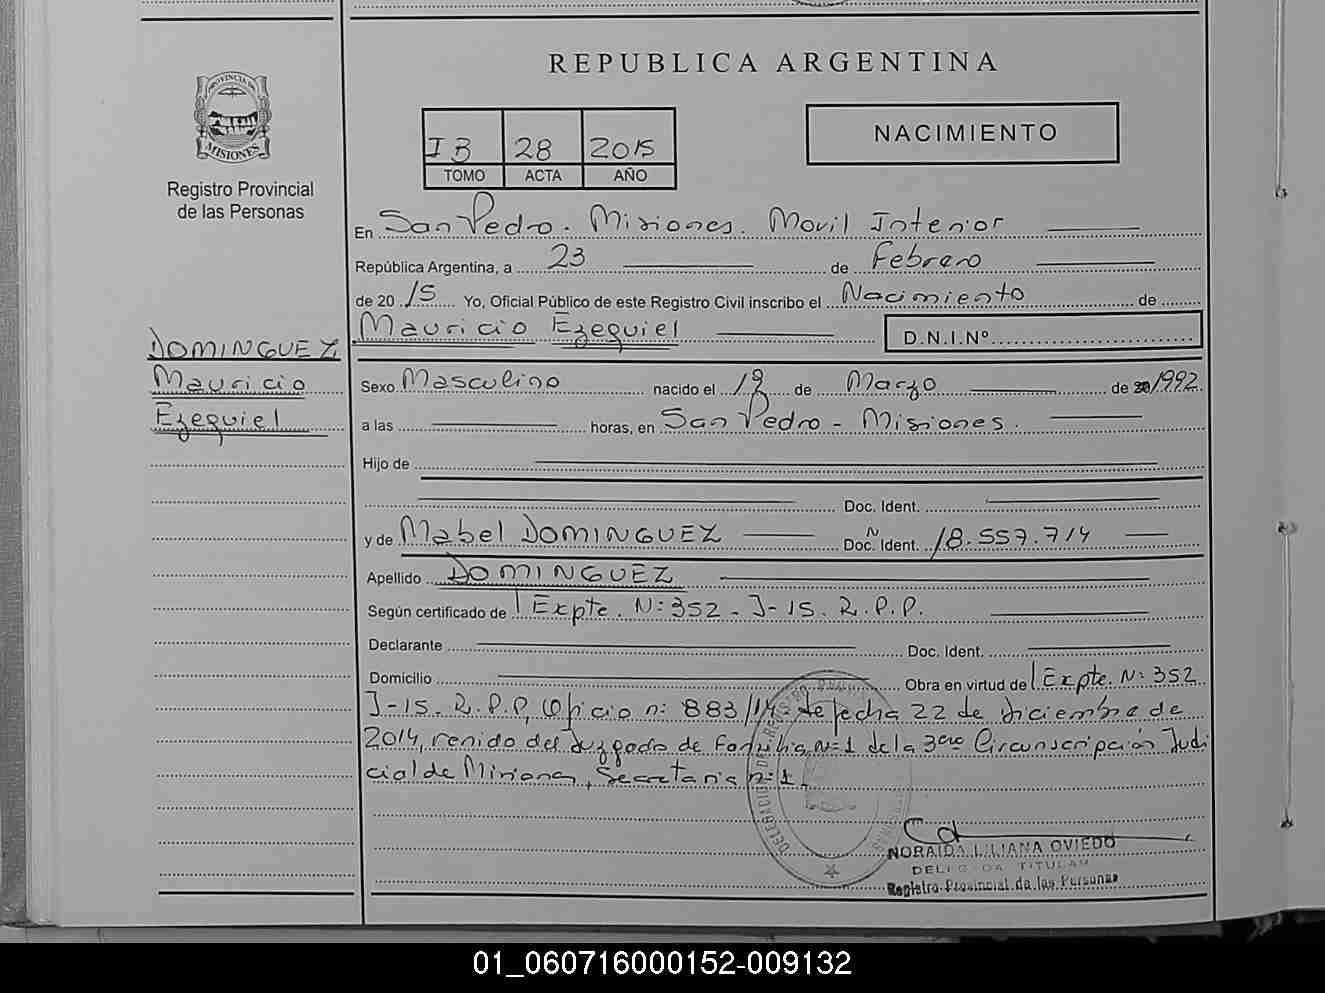 REPUBLICA ARGENTINA
PROVINCIA DE
MISIONES
Registro Provincial
de las Personas
IB 28 2015
TOMO ACTA AÑO
NACIMIENTO
En San Pedro. Misiones. Movil Interior
República Argentina, a 23 de Febrero
de 20 15 Yo, Oficial Público de este Registro Civil inscribo el Nacimiento de
Mauricio Ezequiel D.N.I.Nº
DOMINGUEZ
Mauricio
Ezequiel
Sexo Masculino nacido el de Marzo de 1992
a las horas, en San Pedro - Misiones.
Hijo de
Doc. Ident.
y de Mabel DOMINGUEZ Doc. Ident. N 18.557.714
Apellido DOMINGUEZ
Según certificado de Expte. N: 352 - J-15. R.P.P.
Declarante Doc. Ident.
Domicilio Obra en virtud de Expte. N: 352
J-15. R.P.P, Oficio n: 883/14 de fecha 22 de diciembre de
2014, remido del Juzgado de Familia N=1 de la 3era Circunscripción Judi
cial de Misiones, Secretaria n:1.
NORAIDA LILIANA OVIEDO
DELEGADA TITULAR
Registro Provincial de las Personas
01_060716000152-009132